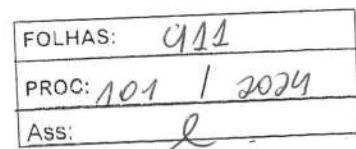 FOLHAS: 911
PROC: 101 / 2024
Ass: